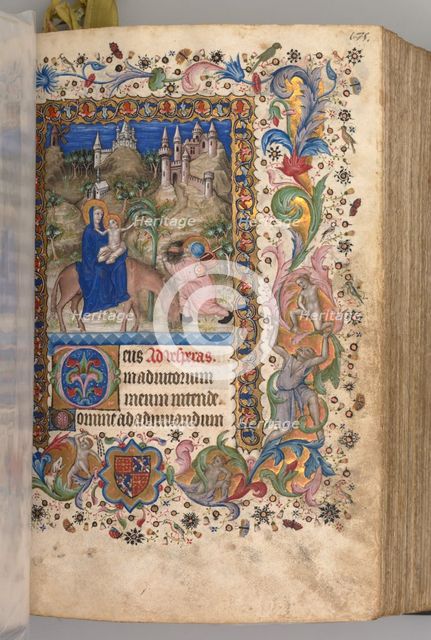 678.
Deus Ad vesperas.
in adiutorium
meum intende
Domine ad adiuvandum
Heritage
Heritage
Heritage
Heritage
Heritage
Heritage